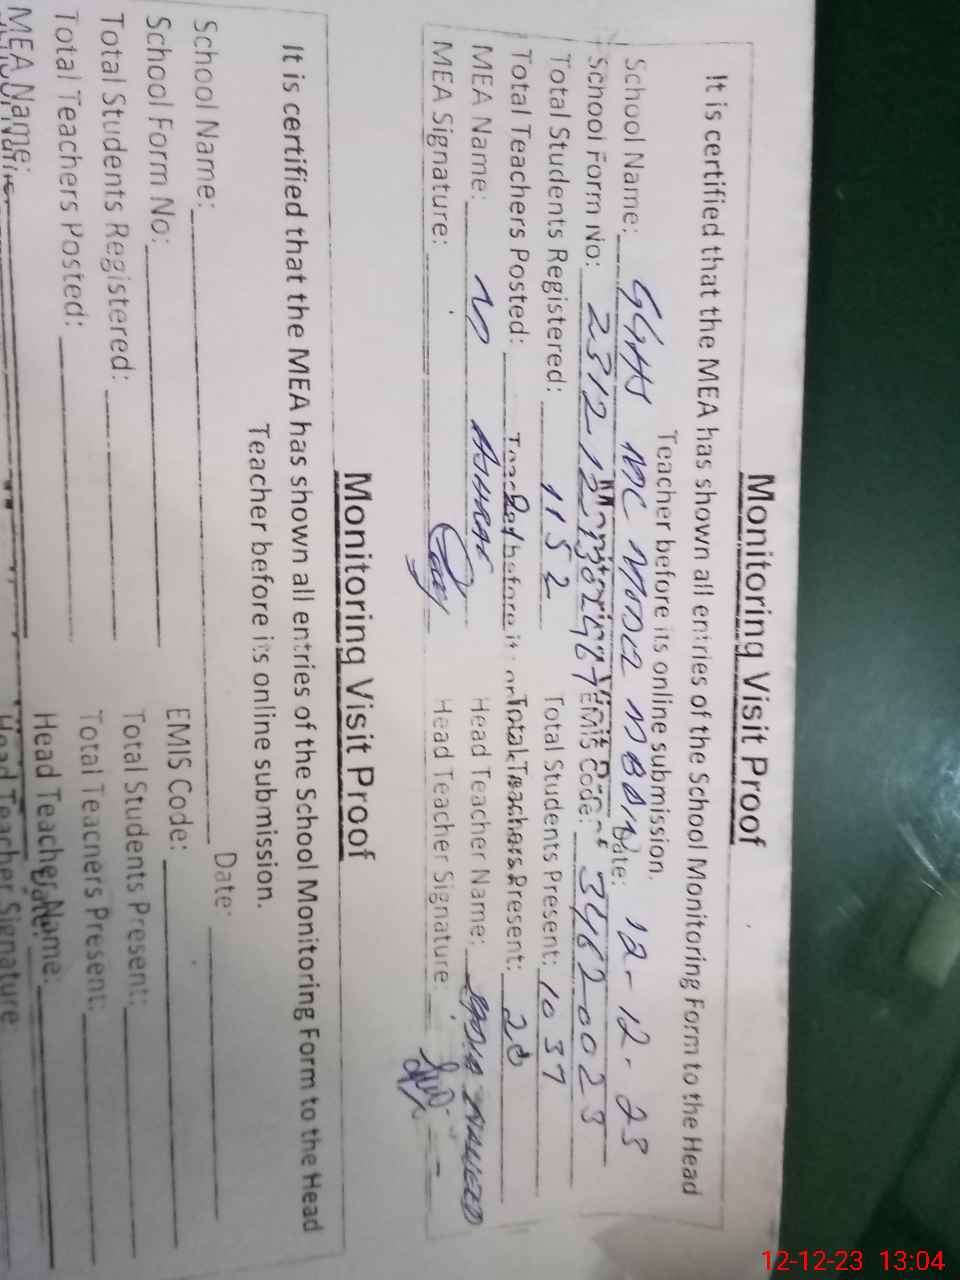 Monitoring Visit Proof
It is certified that the MEA has shown all entries of the School Monitoring Form to the Head
Teacher before its online submission.
School Name: GGHS MC Model Date: 12-12-23
School Form No: EMIS Code: 34620023
Total Students Registered: 1152 Total Students Present: 1037
Total Teachers Posted: Total Teachers Present:
MEA Name: M Ashraf Head Teacher Name:
MEA Signature: Head Teacher Signature:
Monitoring Visit Proof
It is certified that the MEA has shown all entries of the School Monitoring Form to the Head
Teacher before its online submission.
School Name: Date:
School Form No: EMIS Code:
Total Students Registered: Total Students Present:
Total Teachers Posted: Total Teachers Present:
MEA Name: Head Teacher Name:
Head Teacher Signature:
12-12-23 13:04